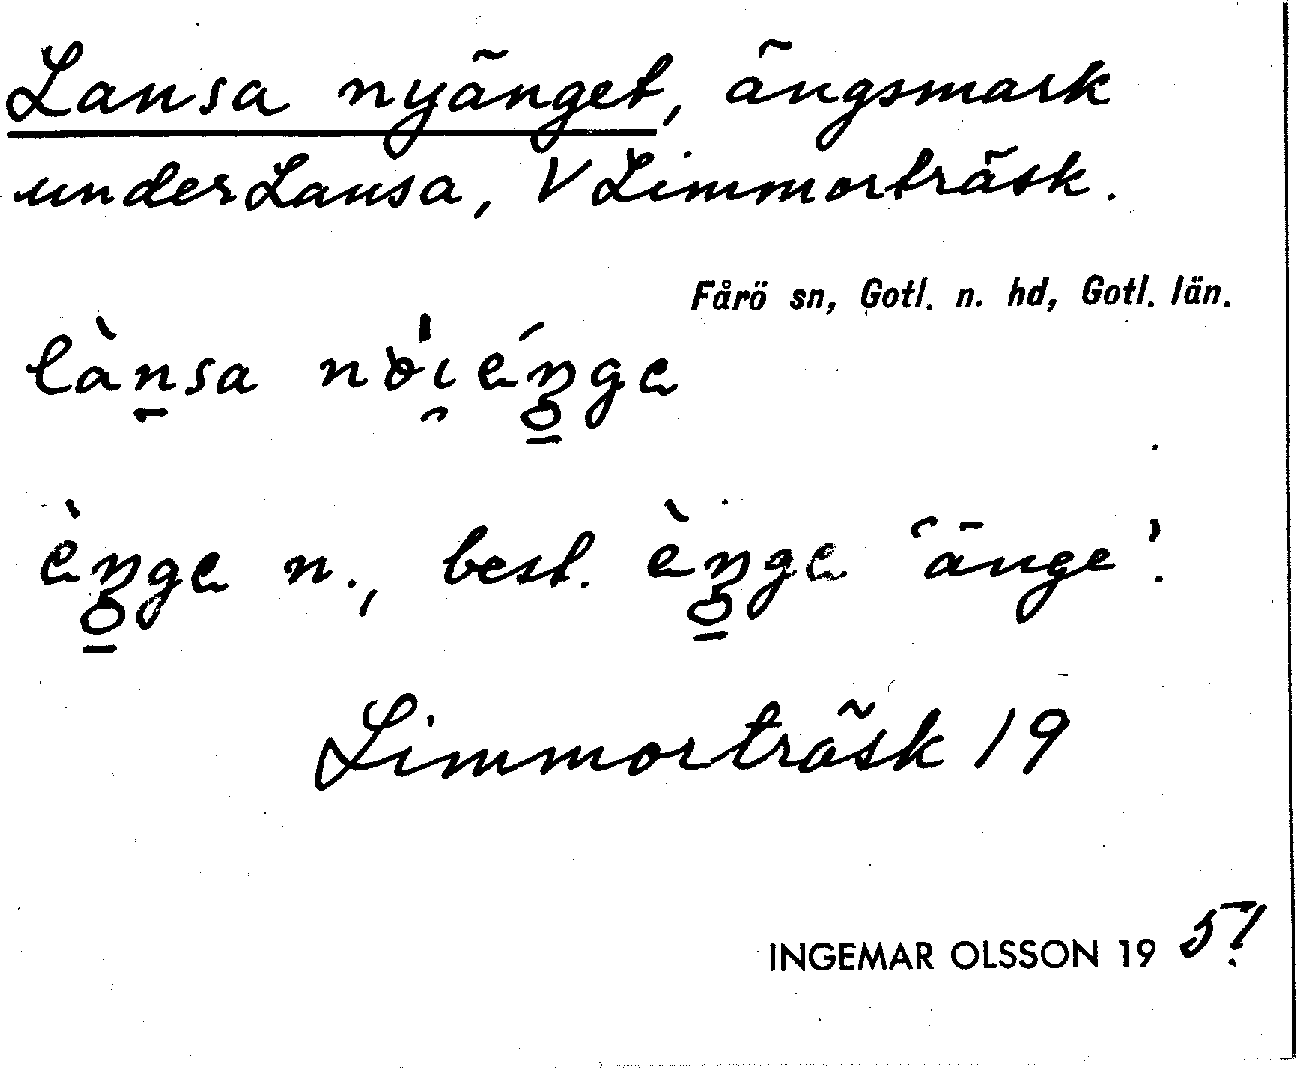 Lansa nyänget, ängsmark
under Lansa, V Limmorträsk.
Fårö sn, Gotl. n. hd, Gotl. län.
lànsa nòienge
ènge n., best. ènge 'änge'.
Limmorträsk 19
INGEMAR OLSSON 19 51